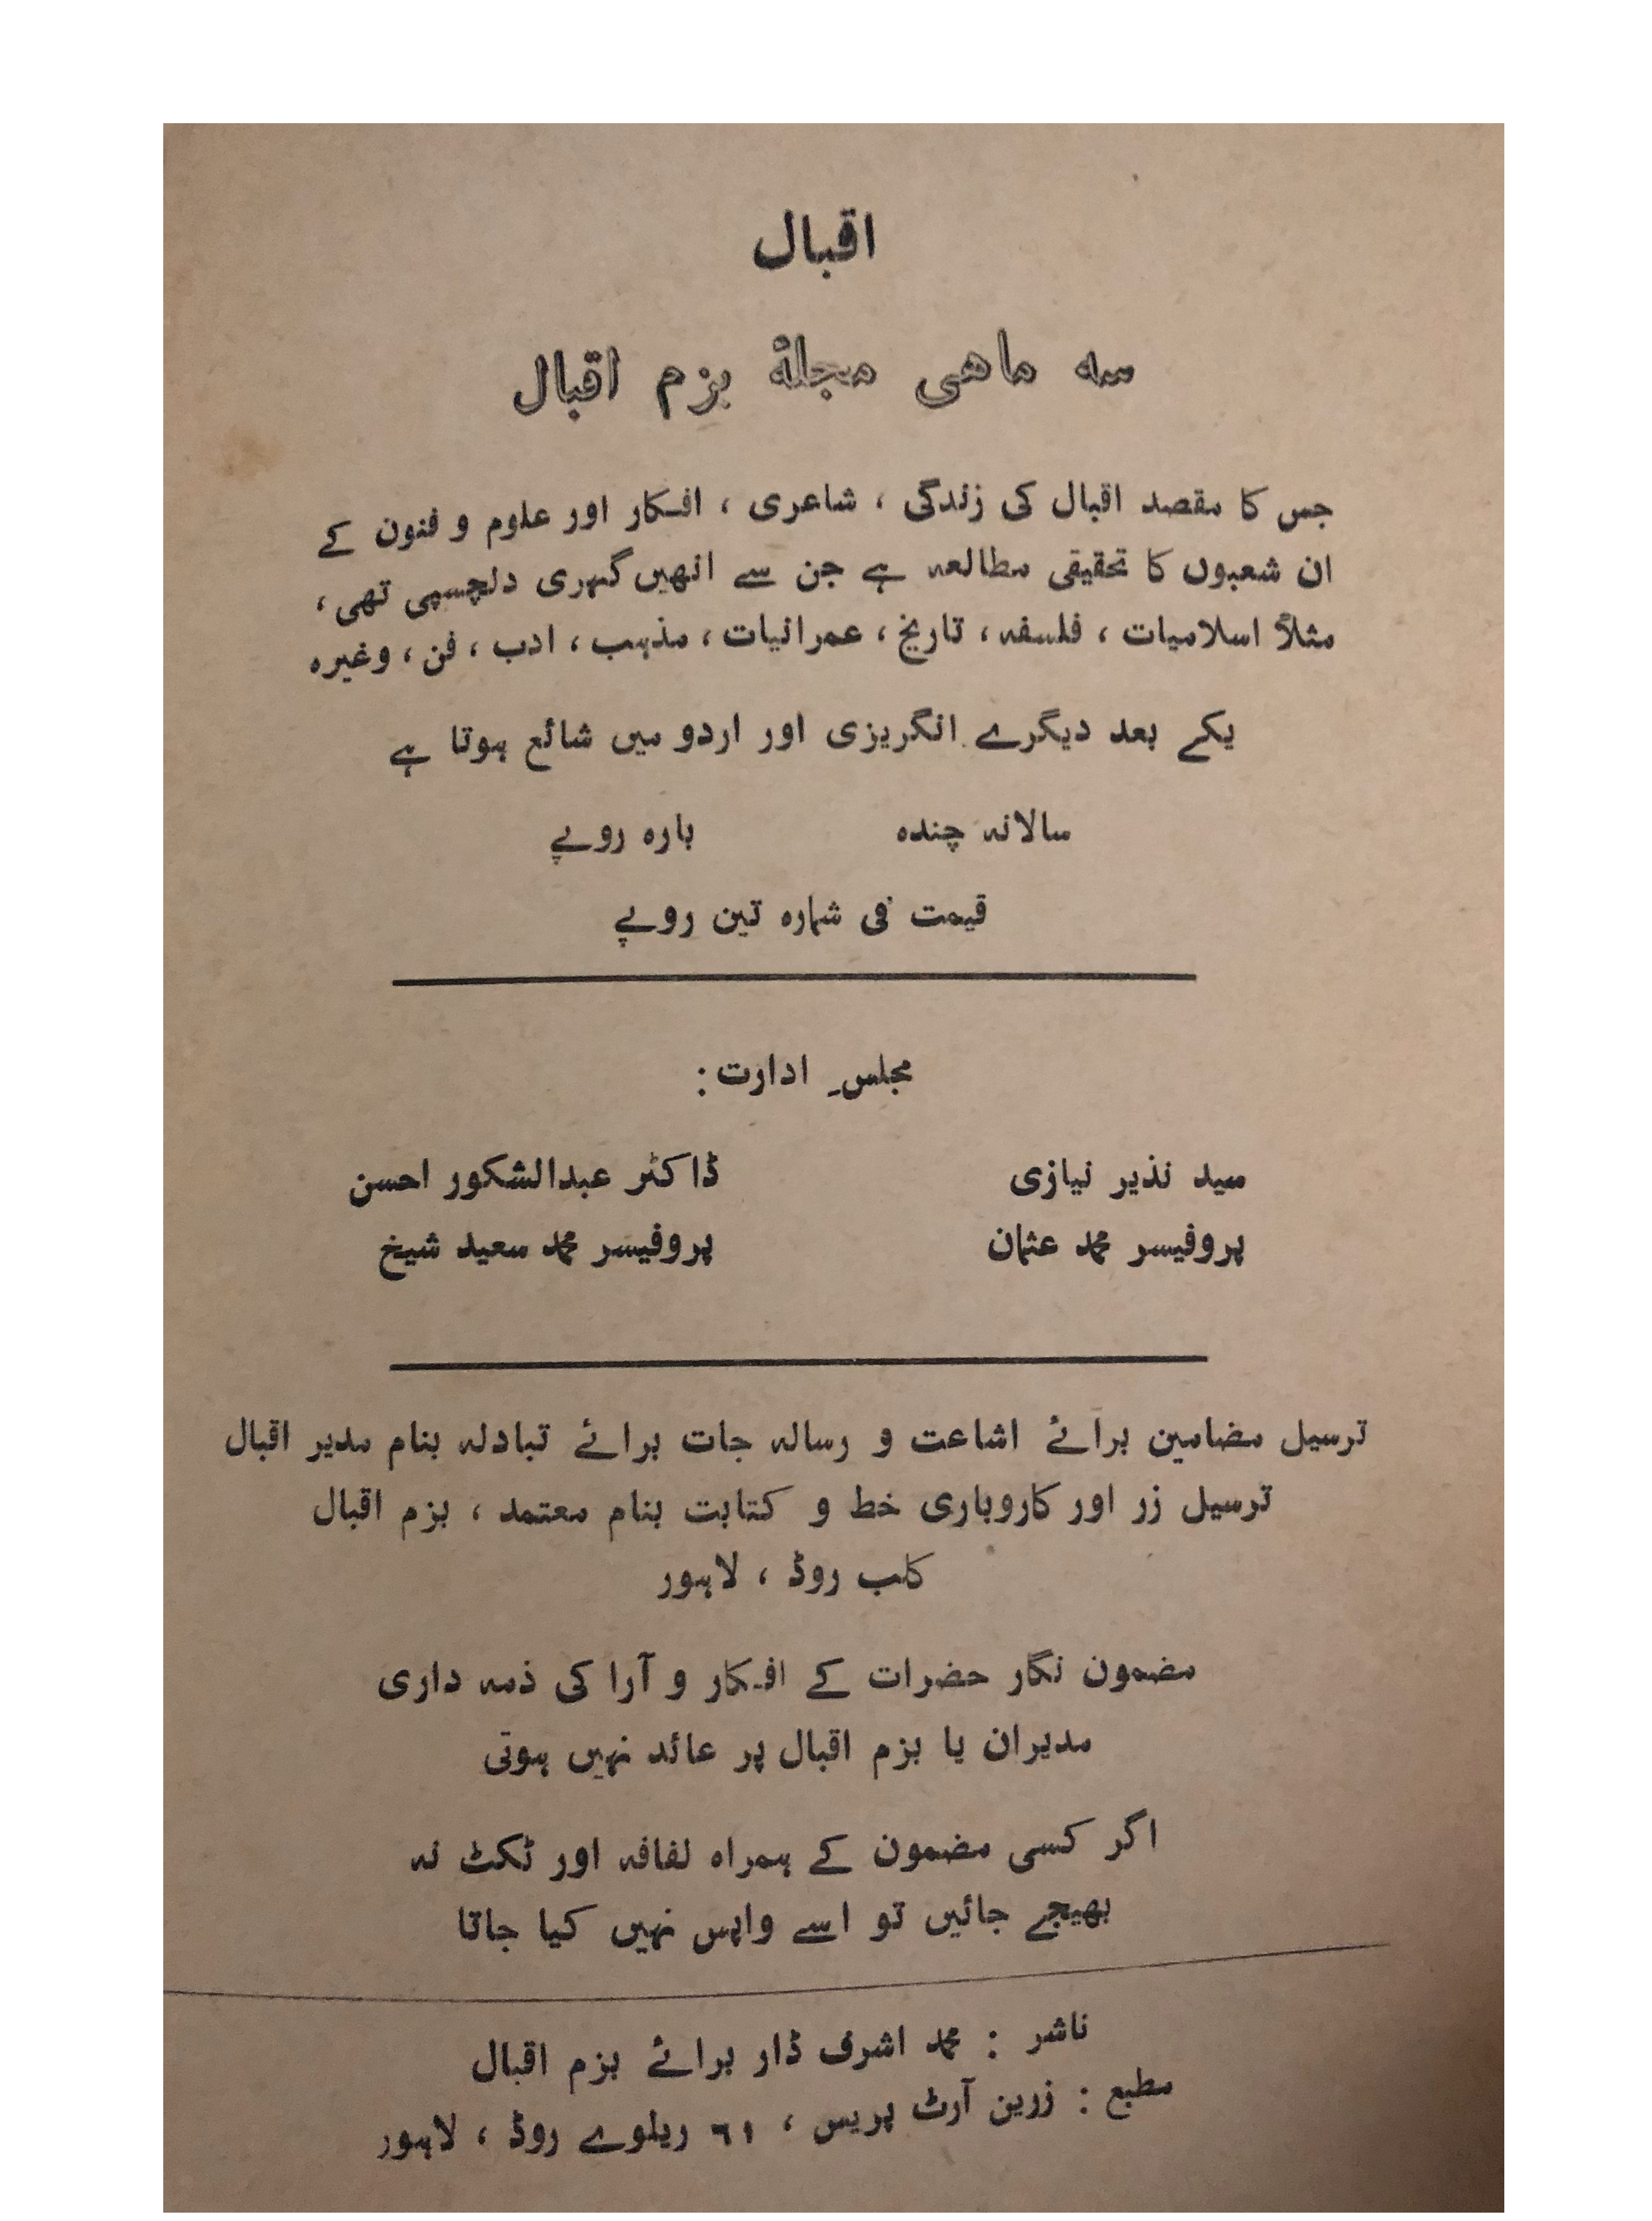 اقبال
سه ماهی مجلهٔ بزم اقبال
جس کا مقصد اقبال کی زندگی ، شاعری ، افکار اور علوم و فنون کے
ان شعبوں کا تحقیقی مطالعہ ہے جن سے انھیں گہری دلچسپی تھی ،
مثلاً اسلامیات ، فلسفہ ، تاریخ ، عمرانیات ، مذہب ، ادب ، فن ، وغیرہ
یکے بعد دیگرے انگریزی اور اردو میں شائع ہوتا ہے
سالانہ چندہ بارہ روپے
قیمت فی شمارہ تین روپے
مجلسِ ادارت :
سید نذیر نیازی ڈاکٹر عبدالشکور احسن
پروفیسر محمد عثمان پروفیسر محمد سعید شیخ
ترسیل مضامین برائے اشاعت و رسالہ جات برائے تبادلہ بنام مدیر اقبال
ترسیل زر اور کاروباری خط و کتابت بنام معتمد ، بزم اقبال
کلب روڈ ، لاہور
مضمون نگار حضرات کے افکار و آرا کی ذمہ داری
مدیران یا بزم اقبال پر عائد نہیں ہوتی
اگر کسی مضمون کے ہمراہ لفافہ اور ٹکٹ نہ
بھیجے جائیں تو اسے واپس نہیں کیا جاتا
ناشر : محمد اشرف ڈار برائے بزم اقبال
مطبع : زرین آرٹ پریس ، ٦١ ریلوے روڈ ، لاہور